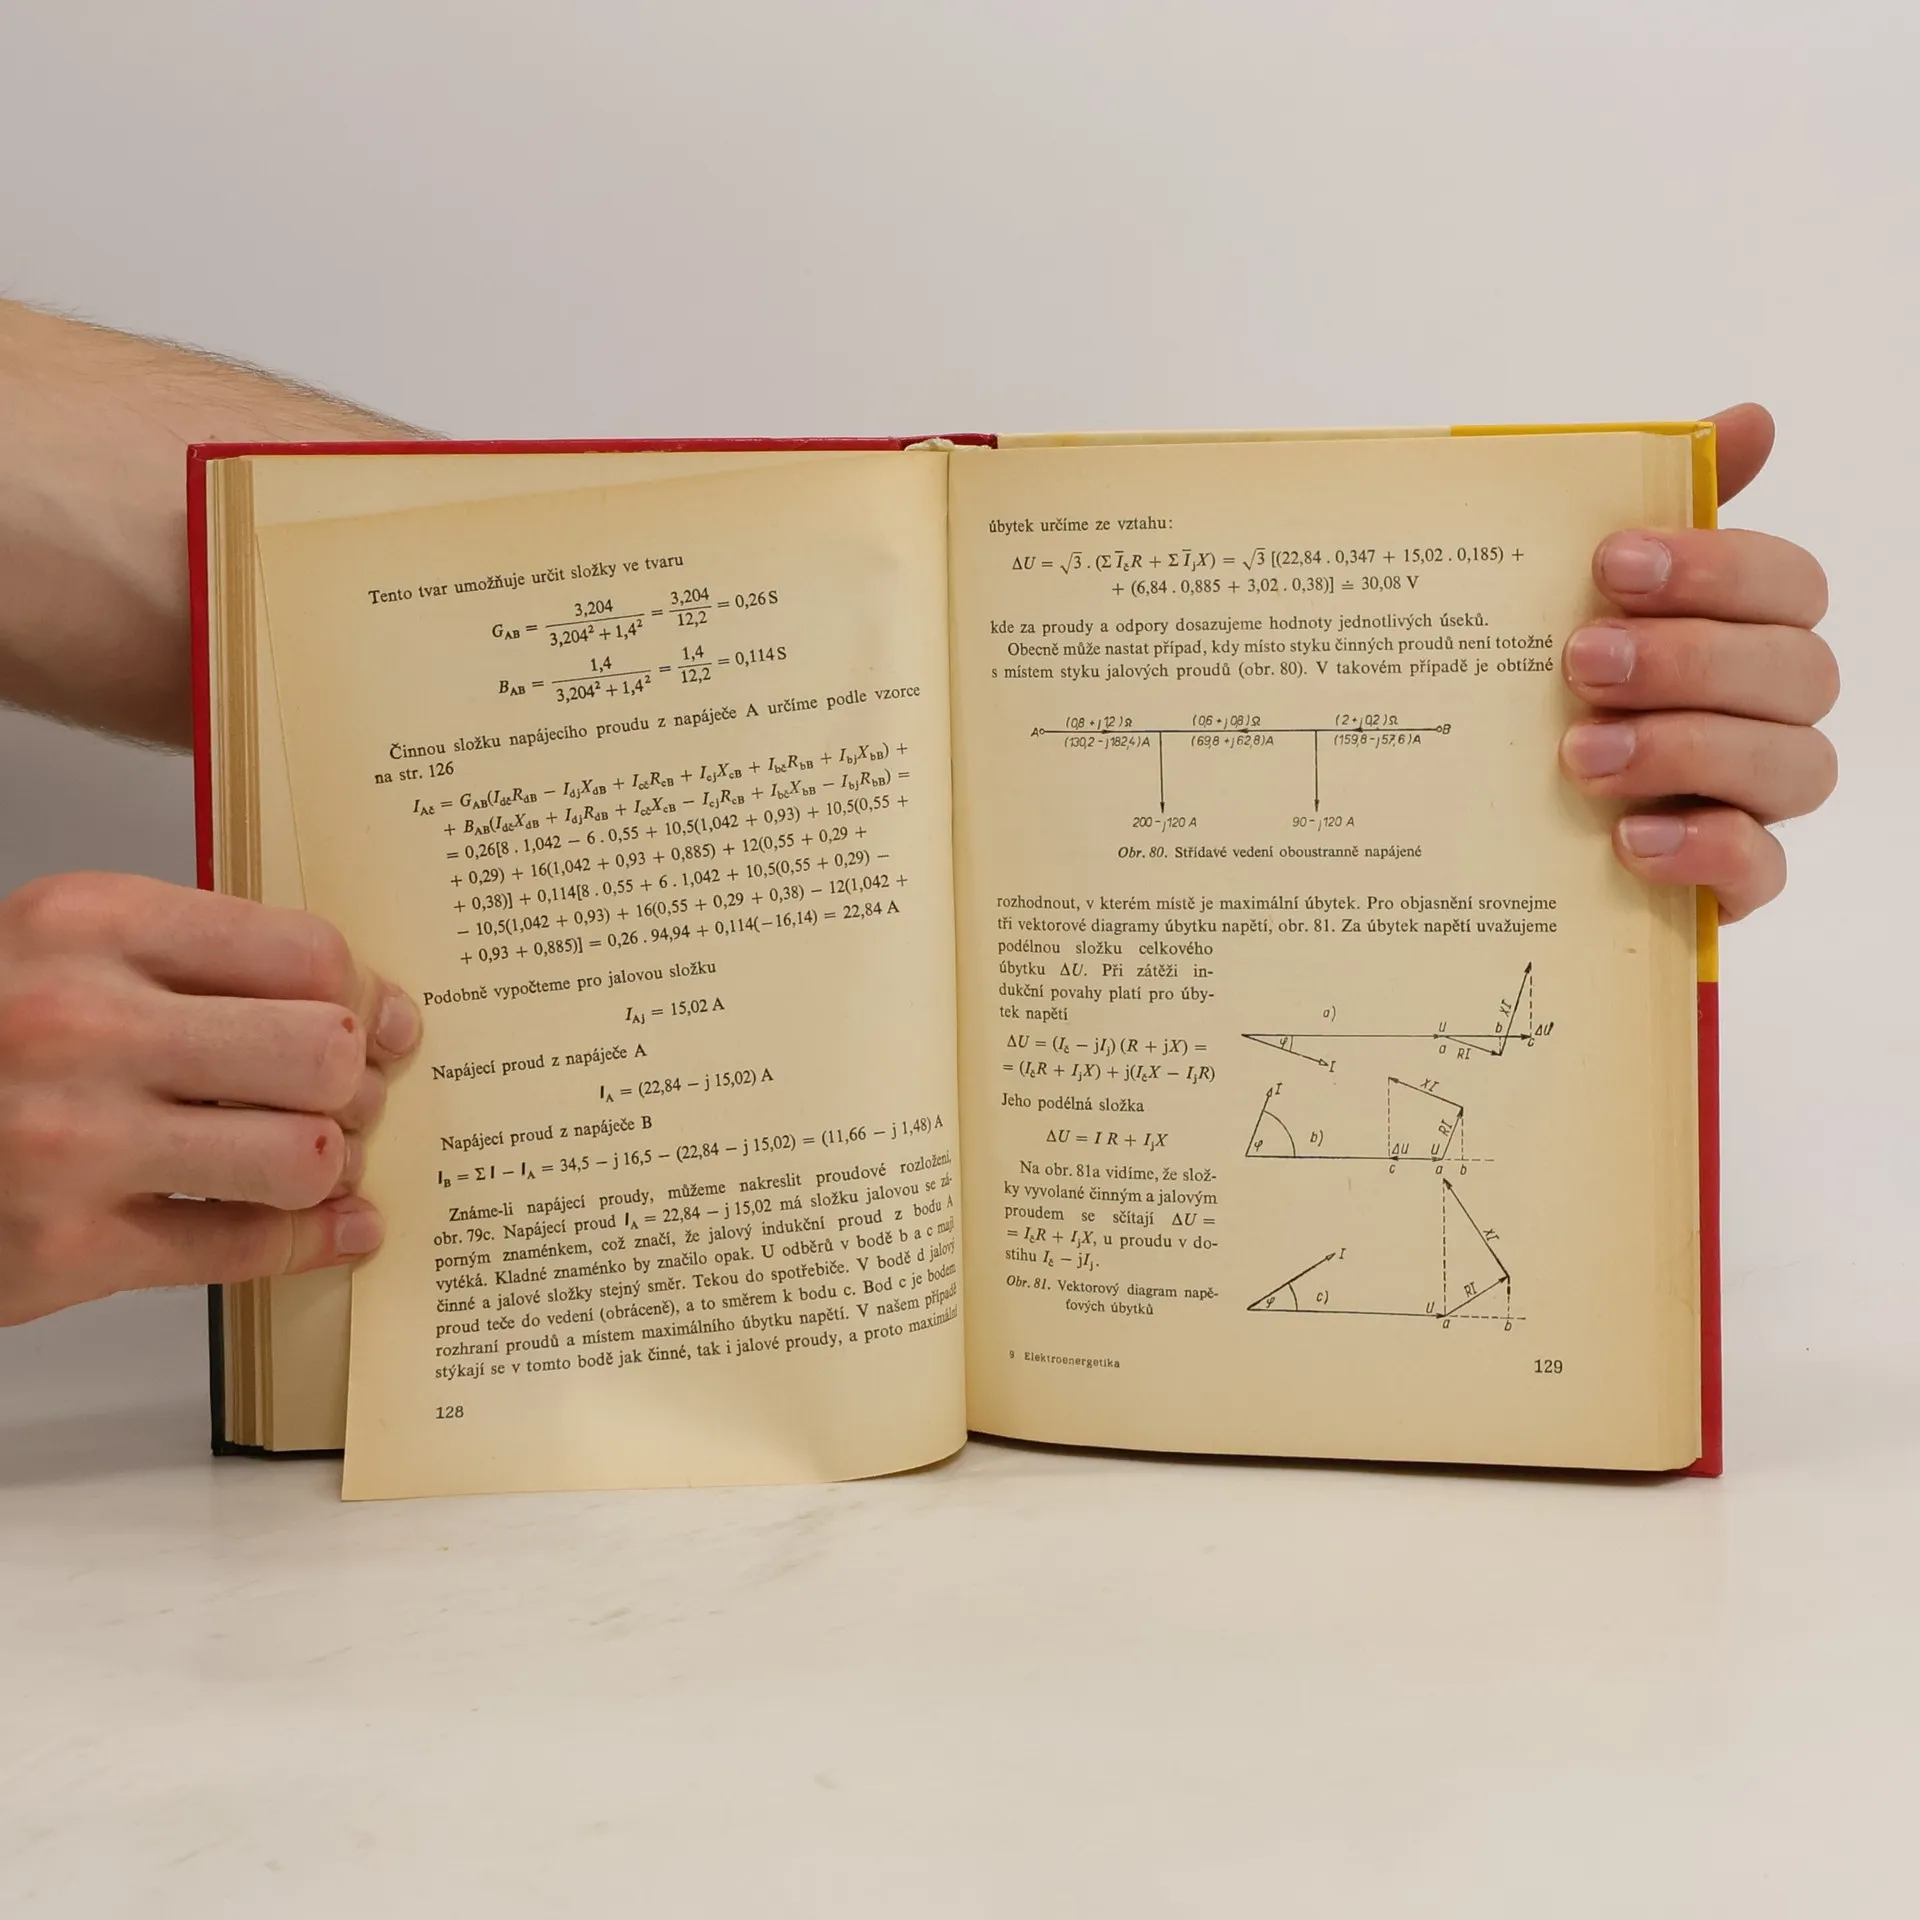 Tento tvar umožňuje určit složky ve tvaru
G_AB = 3,204 / (3,204² + 1,4²) = 3,204 / 12,2 = 0,26 S
B_AB = 1,4 / (3,204² + 1,4²) = 1,4 / 12,2 = 0,114 S
Činnou složku napájecího proudu z napáječe A určíme podle vzorce
na str. 126
I_Ač = G_AB(I_dč R_dB − I_dj X_dB + I_cč R_cB + I_cj X_cB + I_bč R_bB + I_bj X_bB) +
+ B_AB(I_dč X_dB + I_dj R_dB + I_cč X_cB − I_cj R_cB + I_bč X_bB − I_bj R_bB) =
= 0,26[8 . 1,042 − 6 . 0,55 + 10,5(1,042 + 0,93) + 10,5(0,55 +
+ 0,29) + 16(1,042 + 0,93 + 0,885) + 12(0,55 + 0,29 +
+ 0,38)] + 0,114[8 . 0,55 + 6 . 1,042 + 10,5(0,55 + 0,29) −
− 10,5(1,042 + 0,93) + 16(0,55 + 0,29 + 0,38) − 12(1,042 +
+ 0,93 + 0,885)] = 0,26 . 94,94 + 0,114(−16,14) = 22,84 A
Podobně vypočteme pro jalovou složku
I_Aj = 15,02 A
Napájecí proud z napáječe A
I_A = (22,84 − j 15,02) A
Napájecí proud z napáječe B
I_B = Σ I − I_A = 34,5 − j 16,5 − (22,84 − j 15,02) = (11,66 − j 1,48) A
Známe-li napájecí proudy, můžeme nakreslit proudové rozložení,
obr. 79c. Napájecí proud I_A = 22,84 − j 15,02 má složku jalovou se zá-
porným znaménkem, což značí, že jalový indukční proud z bodu A
vytéká. Kladné znaménko by značilo opak. U odběrů v bodě b a c mají
činné a jalové složky stejný směr. Tekou do spotřebiče. V bodě d jalový
proud teče do vedení (obráceně), a to směrem k bodu c. Bod c je bodem
rozhraní proudů a místem maximálního úbytku napětí. V našem případě
stýkají se v tomto bodě jak činné, tak i jalové proudy, a proto maximální
128
úbytek určíme ze vztahu:
ΔU = √3 . (Σ I_č R + Σ I_j X) = √3 [(22,84 . 0,347 + 15,02 . 0,185) +
+ (6,84 . 0,885 + 3,02 . 0,38)] ≐ 30,08 V
kde za proudy a odpory dosazujeme hodnoty jednotlivých úseků.
Obecně může nastat případ, kdy místo styku činných proudů není totožné
s místem styku jalových proudů (obr. 80). V takovém případě je obtížné
(0,8 + j 1,2) Ω (0,6 + j 0,8) Ω (2 + j 0,2) Ω
A B
(130,2 - j 182,4) A (69,8 + j 62,8) A (159,8 - j 57,6) A
200 - j 120 A 90 - j 120 A
Obr. 80. Střídavé vedení oboustranně napájené
rozhodnout, v kterém místě je maximální úbytek. Pro objasnění srovnejme
tři vektorové diagramy úbytku napětí, obr. 81. Za úbytek napětí uvažujeme
podélnou složku celkového
úbytku ΔU. Při zátěži in-
dukční povahy platí pro úby-
tek napětí
ΔU = (I_č − jI_j) (R + jX) =
= (I_č R + I_j X) + j(I_č X − I_j R)
Jeho podélná složka
ΔU = I R + I_j X
Na obr. 81a vidíme, že slož-
ky vyvolané činným a jalovým
proudem se sčítají ΔU =
= I_č R + I_j X, u proudu v do-
stihu I_č − jI_j.
Obr. 81. Vektorový diagram napě-
ťových úbytků
a)
U b XI ΔU
φ a RI c
I
I XI
b) RI
φ ΔU U
c a b
I XI
φ c) RI
U a b
9 Elektroenergetika
129